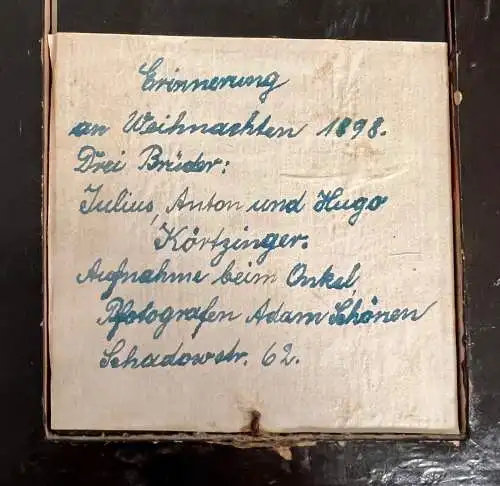 Erinnerung
an Weihnachten 1898.
Drei Brüder:
Julius, Anton und Hugo
Körtzinger.
Aufnahme beim Onkel,
Pfotografen Adam Schönen
Schadowstr. 62.